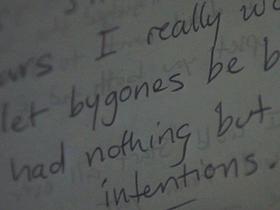 I really
let bygones be
had nothing but
intentions.